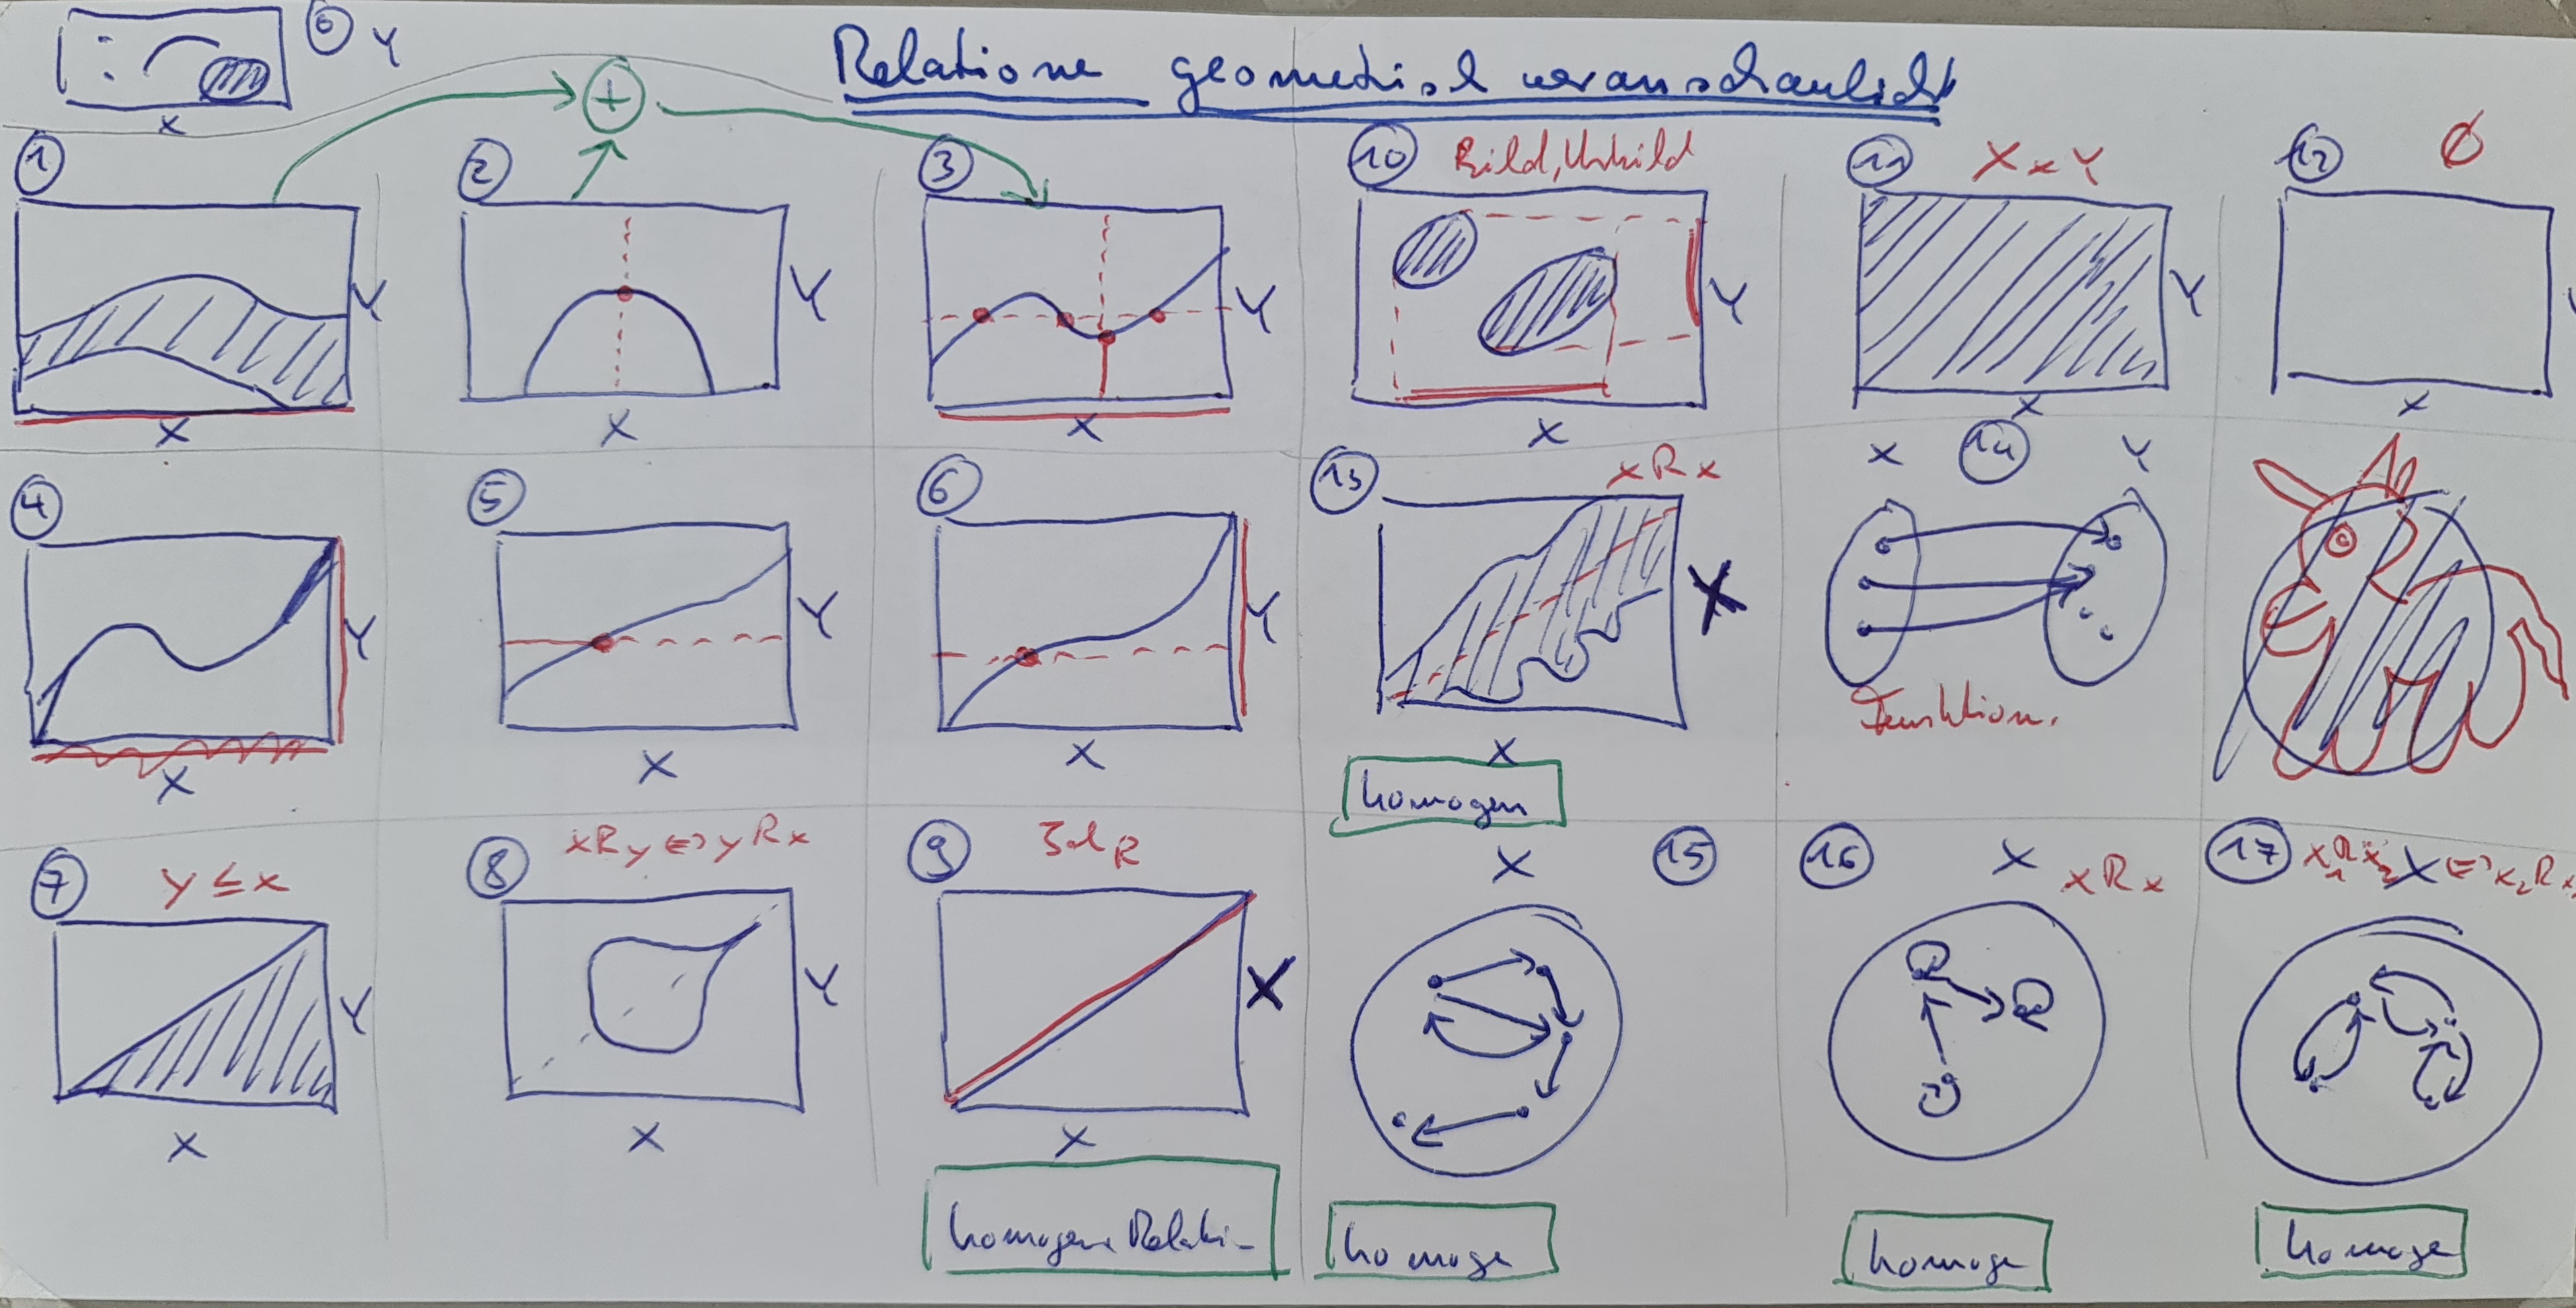 0 Y
X
Relationen geometrisch veranschaulicht
+
1
Y
X
2
Y
X
3
Y
X
10 Bild, Urbild
Y
X
11 X x Y
Y
X
12 ∅
X
4
Y
X
5
Y
X
6
Y
X
13 xRx
X
X
homogen
X 14 Y
Funktion.
7 y ≤ x
Y
X
8 xRy ⇔ yRx
Y
X
9
X
X
homogene Relation
X 15
homogen
16 X xRx
homogen
17 X
homogen